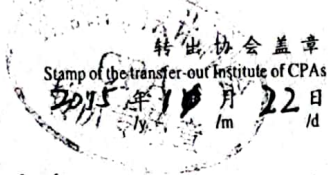 转出协会盖章
Stamp of the transfer-out Institute of CPAs
2015年10月22日
/y /m /d